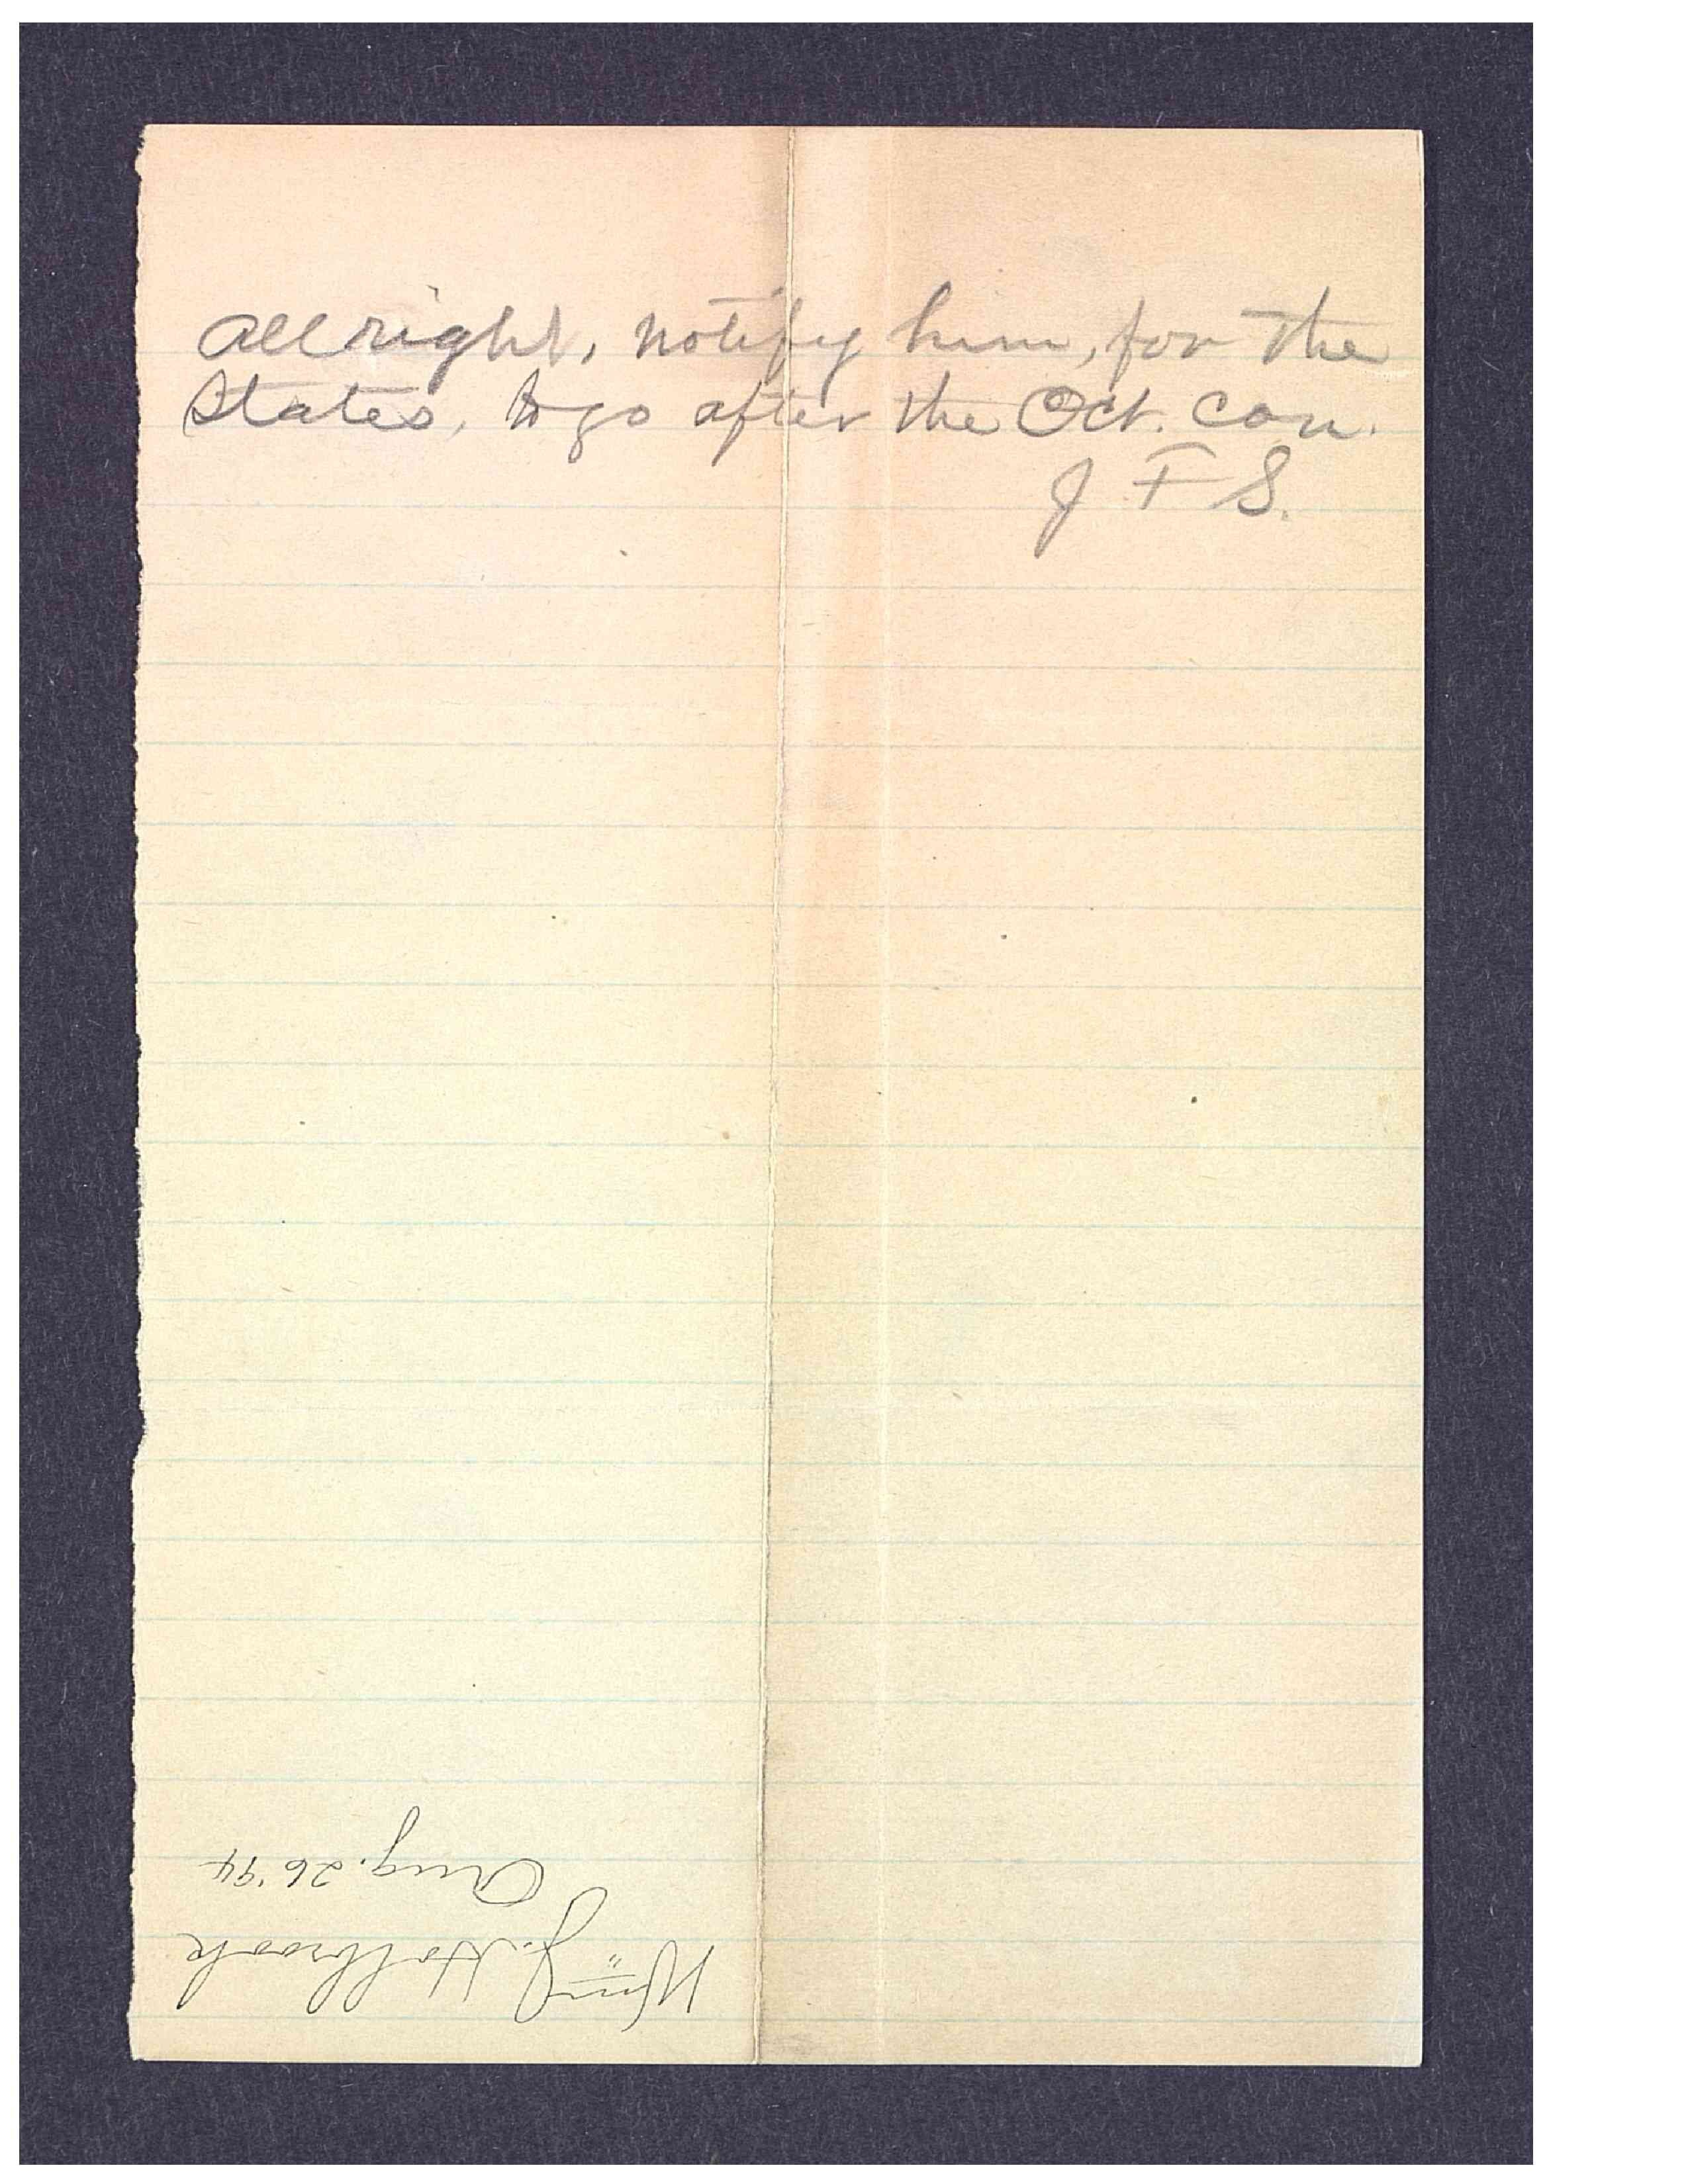 all right, notify him, for the
States, to go after the Oct. con.
J F S.
Wm J. Holbrook
Aug. 26 '94